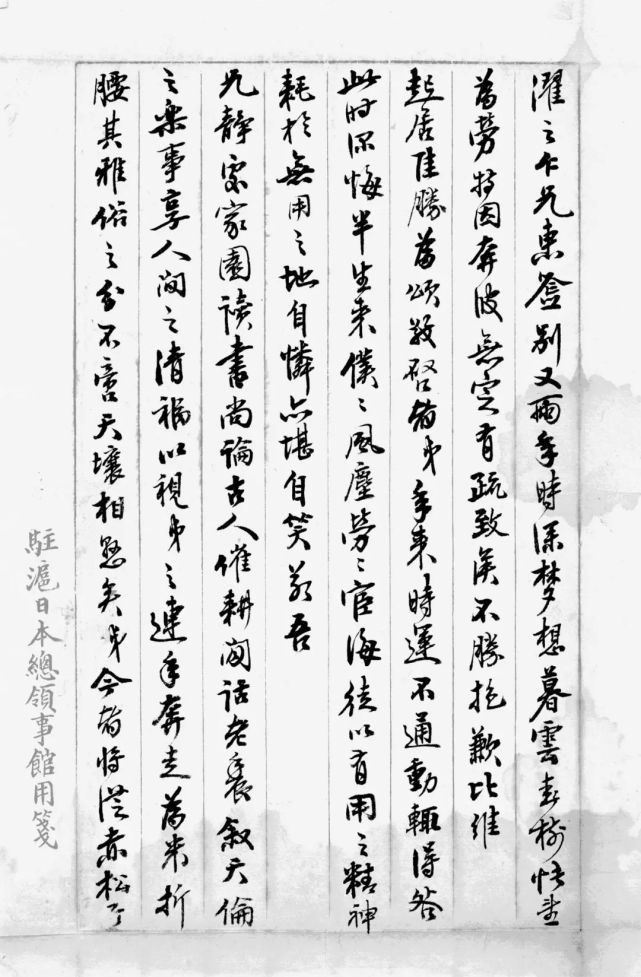 濯之仁兄惠鑒別又兩年時深梦想暮雲春樹悵望
為勞特因奔波無定有疏致候不勝抱歉比維
起居佳勝為頌敬啓者弟年來時運不通動輒得咎
此时深悔半生來僕〻風塵勞〻宦海徒以有用之精神
耗於無用之地自憐亦堪自笑若吾
兄靜處家園讀書尚論古人催耕閒話老農叙天倫
之樂事享人间之清福以視弟之連年奔走為米折
腰其雅俗之分不啻天壤相懸矣弟今者將從赤松子
駐滬日本總領事館用箋